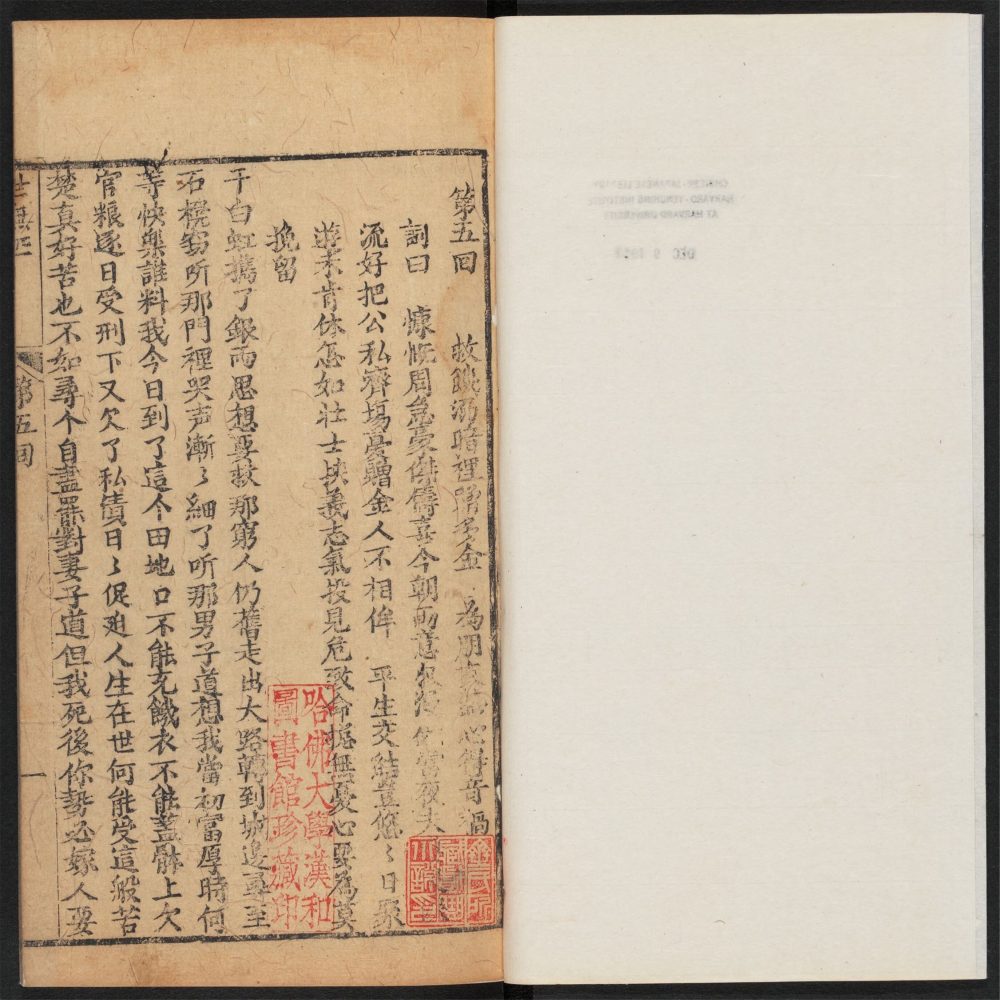 第五回　救饑溺暗裡贈多金　為朋友無心得奇禍
詞曰　慷慨周急豪傑儔喜今朝兩意夫
流好把公私齊塲憂贈金人不相侔　平生交結豈悠〻日聚
遊未肯休怎如壯士挾義志氣投見危致命摠無憂心要為莫
挽留
干白虹攜了銀兩思想要救那窮人仍舊走出大路轉到城邊尋至
石橋窃听那門裡哭声漸〻細了听那男子道想我當初富厚時何
等快樂誰料我今日到了這个田地口不能充饑衣不能蓋骵上欠
官粮逐日受刑下又欠了私債日〻促廹人生在世何能受這般苦
楚真好苦也不如尋个自盡罷對妻子道但我死後你勢必嫁人要
第五回
一
哈佛大學漢和
圖書館珍藏印
CHINESE-JAPANESE LIBRARY
HARVARD-YENCHING INSTITUTE
AT HARVARD UNIVERSITY
DEC 9